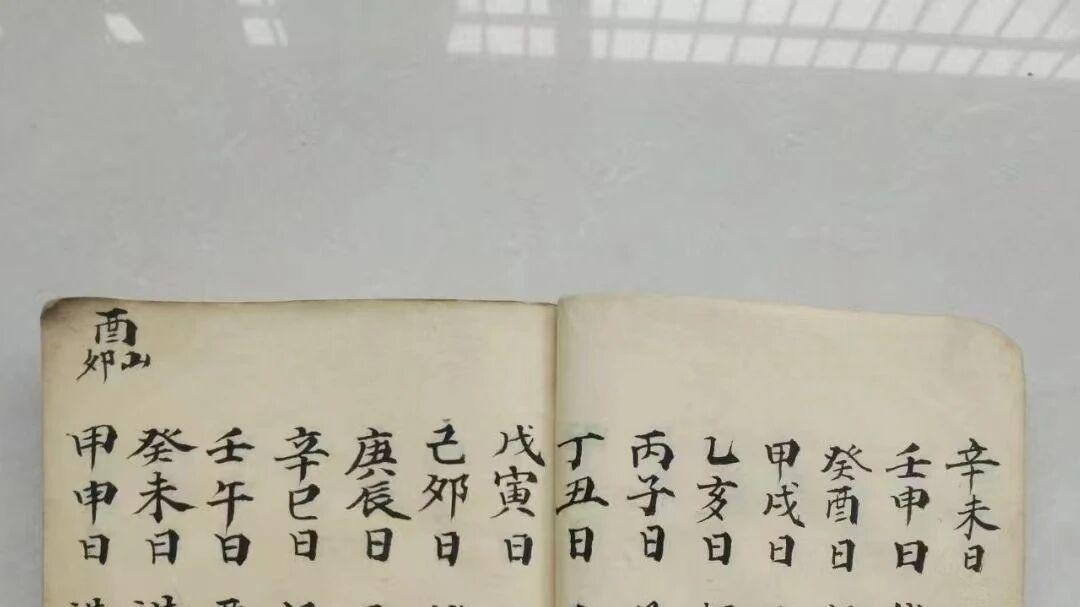 辛未日
壬申日
癸酉日
甲戌日
乙亥日
丙子日
丁丑日
戊寅日
己卯日
庚辰日
辛巳日
壬午日
癸未日
甲申日
酉山卯